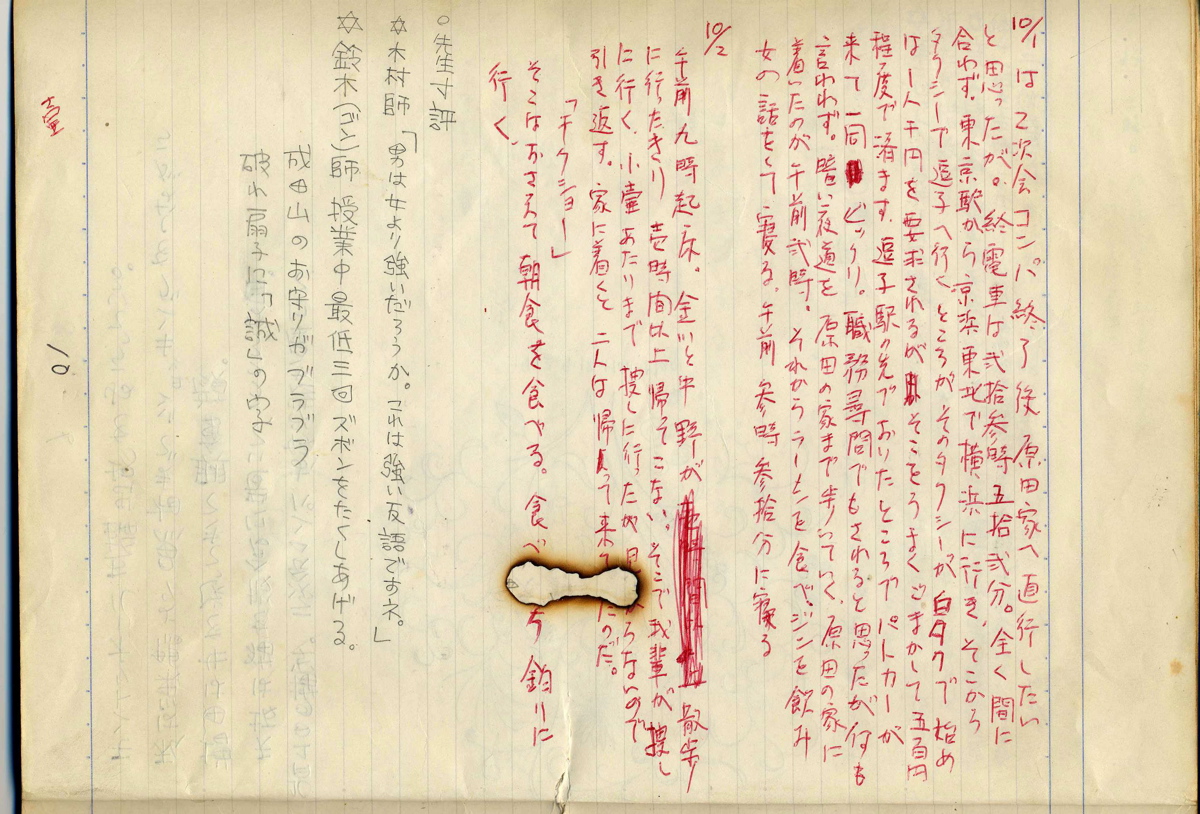 10/1 は 2次会コンパ終了後 原田家へ直行したい
と思ったが。終電車は弐拾参時五拾弐分。全く間に
合わず。東京駅から京浜東北で横浜に行き、そこから
タクシーで逗子へ行く。ところがそのタクシーが白タクで始め
は一人千円を要求されるが そこをうまくごまかして五百円
程度で済ます。逗子駅の先でおりたところでパトカーが
来て一同 ビックリ。職務尋問でもされると思ったが何も
言われず。暗い夜道を 原田の家まで歩いていく。原田の家に
着いたのが午前弐時。それからラーメンを食べ、ジンを飲み
女の話をして寝る。午前 参時 参拾分に寝る
10/2
午前九時起床。金川と中野が 散歩
に行ったきり 壱時間以上 帰ってこない。そこで我輩が捜し
に行く。小壷あたりまで 捜しに行ったが見 らないので
引き返す。家に着くと 二人は帰って来て だ。
「チクショー」
そこはおさえて 朝食を食べる。食べ 釣りに
行く。
○先生寸評
✡ 木村師「男は女より強いだろうか。これは強い反語ですネ。」
✡ 鈴木(ゴン)師 授業中最低三回ズボンをたくしあげる。
成田山のお守りがブラブラ
破れ扇子に「誠」の字
10/
壷